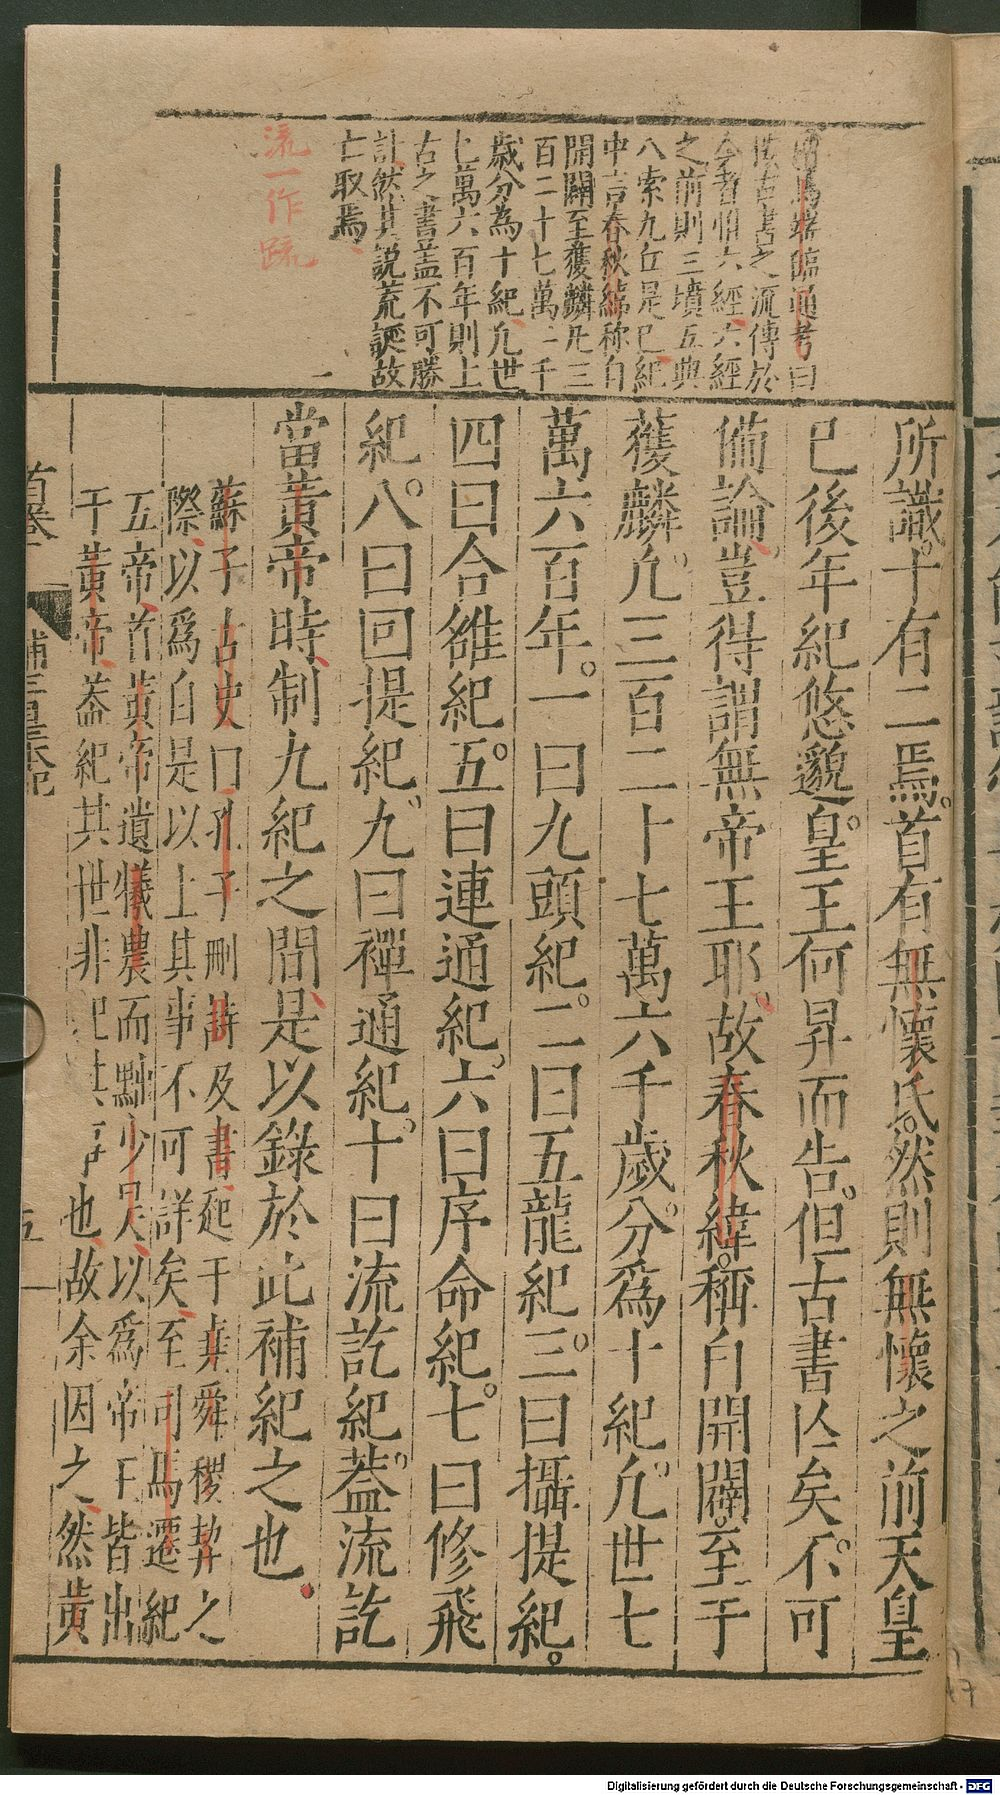 馬端臨通考曰
古書之流傳於
今者惟六經六經
之前則三墳五典
八索九丘是已紀
中言春秋緯称自
開闢至獲麟凡三
百二十七萬六千
歲分為十紀凢世
七萬六百年則上
古之書蓋不可勝
計然其說荒誕故
亡取焉
流一作疏
所識十有二焉首有無懷氏然則無懷之前天皇
已後年紀悠邈皇王何昇而告但古書亾矣不可
備論豈得謂無帝王耶故春秋緯稱自開闢至于
獲麟凢三百二十七萬六千歲分爲十紀凢世七
萬六百年一曰九頭紀二曰五龍紀三曰攝提紀
四曰合雒紀五曰連通紀六曰序命紀七曰修飛
紀八曰回提紀九曰禪通紀十曰流訖紀蓋流訖
當黃帝時制九紀之間是以錄於此補紀之也
蘇子古史曰孔子刪詩及書起于堯舜稷契之
際以爲自是以上其事不可詳矣至司馬遷紀
五帝首黃帝遺犧農而黜少昊以爲帝王皆出
于黃帝蓋紀其世非紀其事也故余因之然黃
首卷
補三皇本紀
五
Digitalisierung gefördert durch die Deutsche Forschungsgemeinschaft - DFG